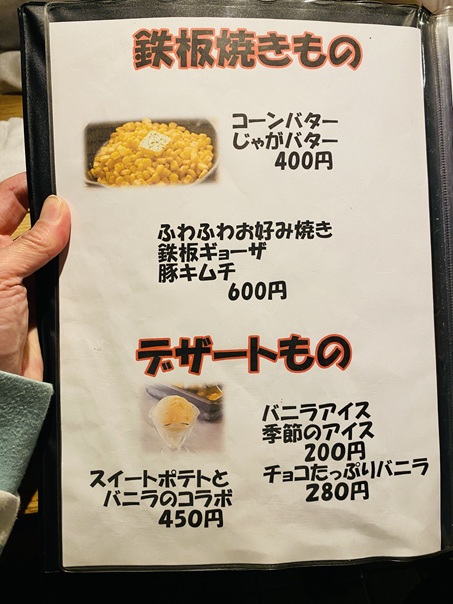 鉄板焼きもの
コーンバター
じゃがバター
400円
ふわふわお好み焼き
鉄板ギョーザ
豚キムチ
600円
デザートもの
バニラアイス
季節のアイス
200円
チョコたっぷりバニラ
280円
スイートポテトと
バニラのコラボ
450円